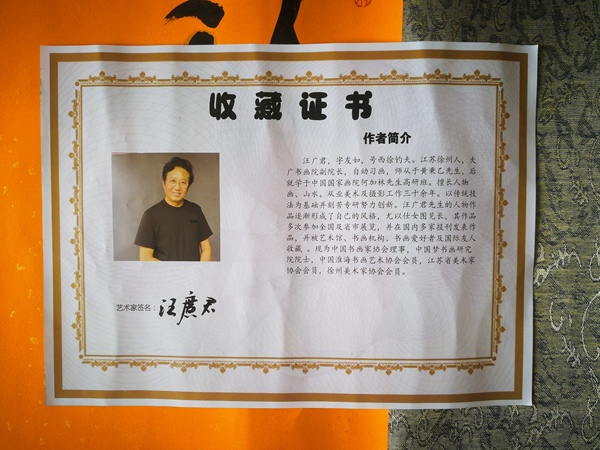 收藏证书
作者简介
汪广君，字友如，号西徐钓夫。江苏徐州人，大
广书画院副院长，自幼习画，师从于黄乘乙先生，后
就学于中国国家画院何加林先生高研班。擅长人物
画、山水。从业美术及摄影工作三十余年。以传统技
法为基础并刻苦专研努力创新。汪广君先生的人物作
品逐渐形成了自己的风格，尤以仕女图见长，其作品
多次参加全国及省市展览，并在国内多家报刊发表作
品，并被艺术馆、书画机构、书画爱好者及国际友人
收藏 。现为中国书画家协会理事，中国梦书画研究
院院士，中国淮海书画艺术协会会员，江苏省美术家
协会会员，徐州美术家协会会员。
艺术家签名：汪廣君